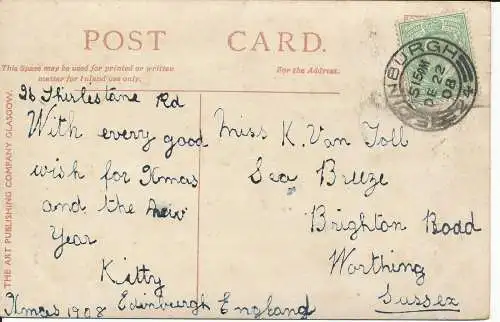 POST CARD.
This Space may be used for printed or written
matter for Inland use only.
For the Address.
EDINBURGH
5 15 PM
DE 2
08
26 Thirlestane Rd
With every good
wish for Xmas
and the New
Year
Kitty
Xmas 1908 Edinburgh England
Miss K. Van Toll
Sea Breeze
Brighton Road
Worthing
Sussex
THE ART PUBLISHING COMPANY GLASGOW.